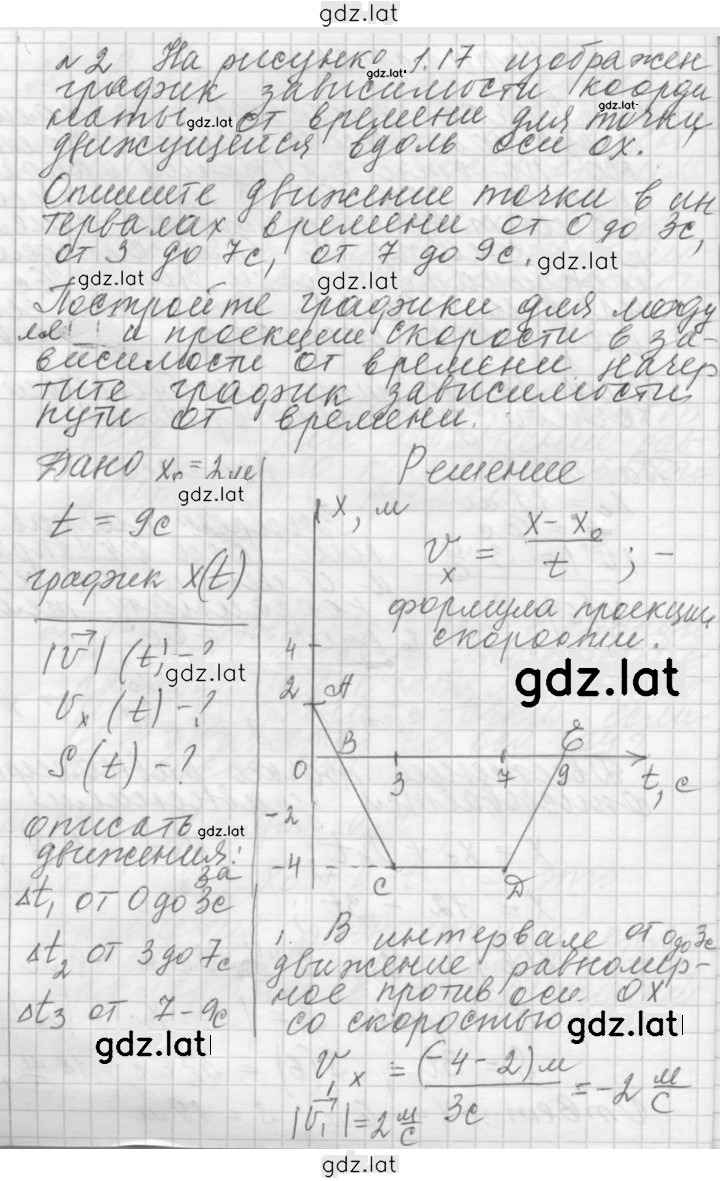 gdz.lat
№2 На рисунке 1.17 изображен
gdz.lat
график зависимости коорди
gdz.lat
наты от времени для точки,
gdz.lat
движущейся вдоль оси ОХ.
Опишите движение точки в ин
тервалах времени от 0 до 3с,
от 3 до 7с, от 7 до 9с.
gdz.lat
gdz.lat
gdz.lat
Постройте графики для модуля
и проекции скорости в за-
висимости от времени. Начер
тите график зависимости
пути от времени.
Дано x₀ = 2м
gdz.lat
t = 9с
график x(t)
|v⃗| (t) - ?
gdz.lat
vₓ (t) - ?
S (t) - ?
описать
gdz.lat
движения:
за
Δt₁ от 0 до 3с
Δt₂ от 3 до 7с
Δt₃ от 7 - 9с
gdz.lat
Решение
vₓ = (x - x₀)/t ; -
формула проекции
скорости.
gdz.lat
X, м
4
2 A
B E
0 3 7 9 t, с
-2
-4
C D
1. В интервале от 0 до 3с
движение равномер-
ное против оси ОХ
со скоростью
gdz.lat
v₁ₓ = (-4 - 2)м/3с = -2 м/с
|v⃗₁| = 2 м/с
gdz.lat